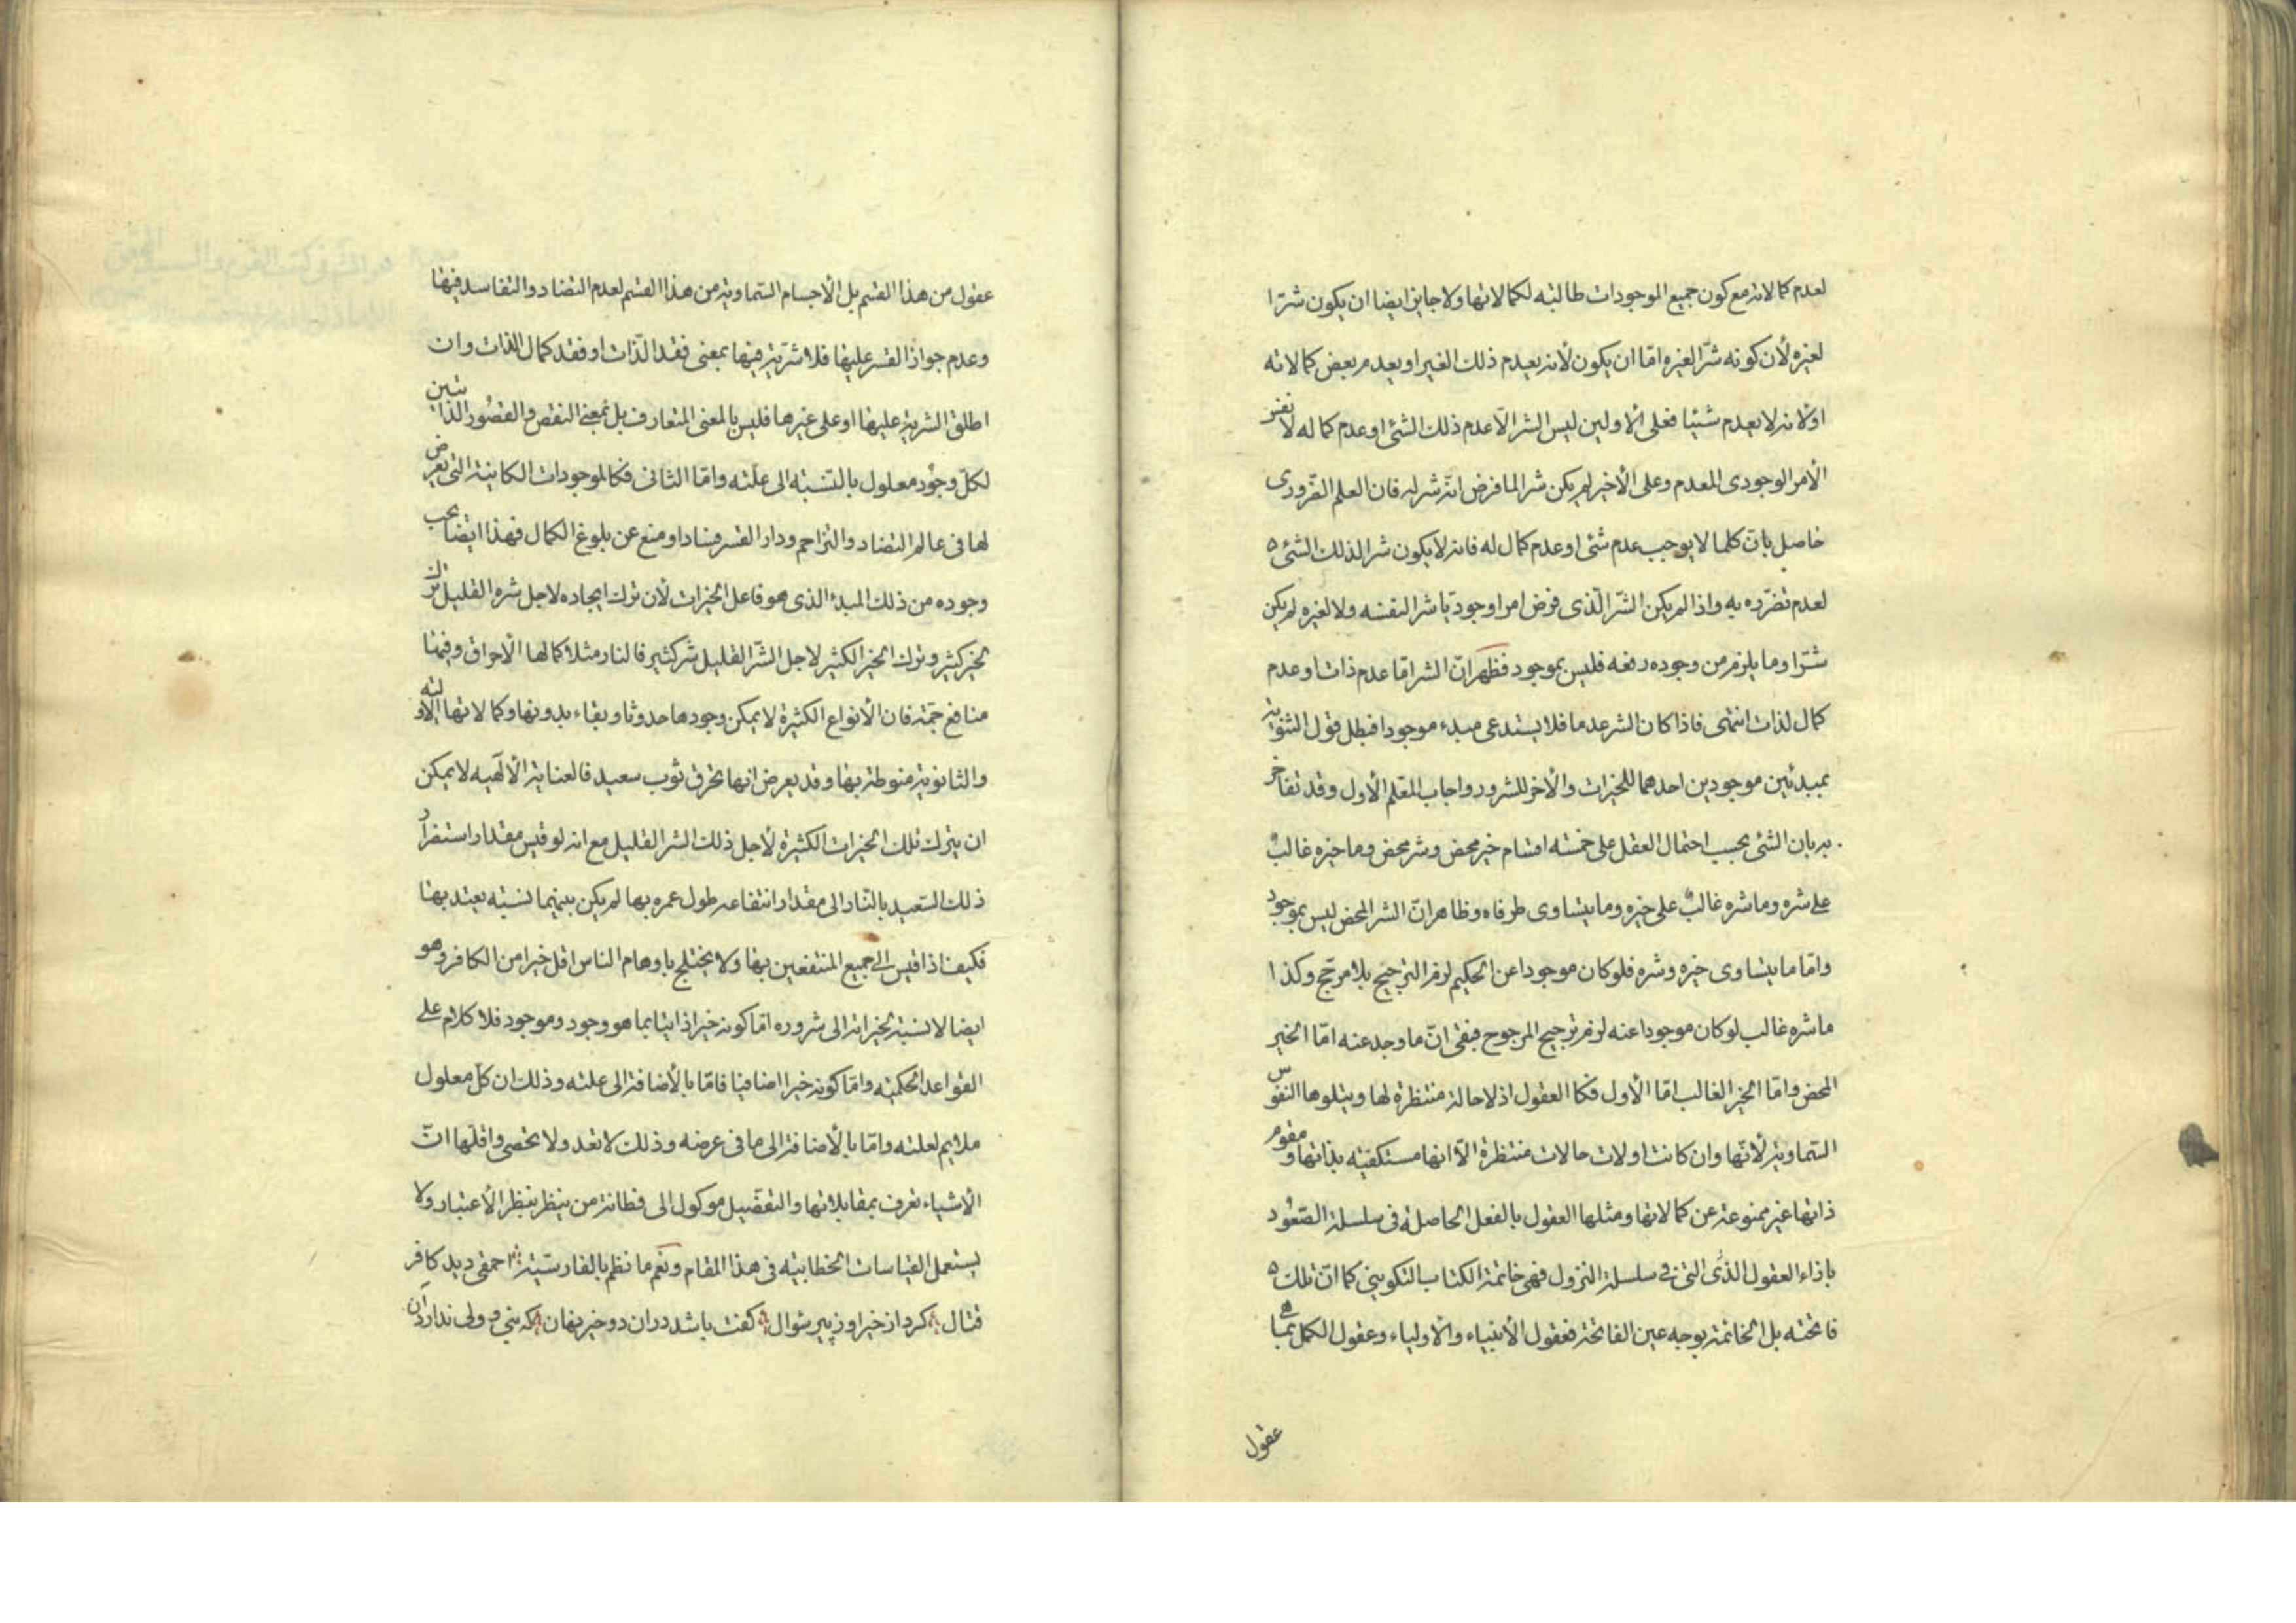 لعدم كمالاته مع كون جميع الموجودات طالبة لكمالاتها ولا جايز ايضا ان يكون شرّا
لغيره لأن كونه شرّا لغيره امّا ان يكون لأنه يعدم ذلك الغير او يعدم بعض كمالاته
او لانه لا يعدم شيئا فعلى الأولين ليس الشر الّا عدم ذلك الشئ او عدم كماله لا نفس
الأمر الوجودى المعدم وعلى الأخير لم يكن شرا لما فرض انّه شر له فان العلم الضّرورى
حاصل بانّ كلما لا يوجب عدم شئ او عدم كمال له فانه لا يكون شرا لذلك الشئ
لعدم تضرّره به واذا لم يكن الشّر الّذى فرض امرا وجوديّا شرا لنفسه ولا لغيره لم يكن
شرّا وما يلزم من وجوده رفعه فليس بموجود فظهر انّ الشر امّا عدم ذات او عدم
كمال لذات انتهى فاذا كان الشر عدما فلا يستدعى مبدء موجودا فبطل قول الثنوية
بمبدئين موجودين احدهما للخيرات والأخر للشرور واجاب المعلم الأول وقد تفاخر
به بان الشئ بحسب احتمال العقل على خمسه اقسام خير محض وشر محض وما خيره غالبٌ
على شره وما شره غالبٌ على خيره وما يتساوى طرفاه وظاهر انّ الشر المحض ليس بموجود
وامّا ما يتساوى خيره وشره فلو كان موجودا عن الحكيم لزم الترجيح بلا مرجّح وكذا
ما شره غالب لو كان موجودا عنه لزم ترجيح المرجوح فبقى انّ ما وجد عنه امّا الخير
المحض وامّا الخير الغالب امّا الأول فكا العقول اذ لا حالة منتظرة لها ويتلوها النفوس
السّماوية لأنّها وان كانت اولات حالات منتظرة الّا انها مستكفيه بذاتها ومقوم
ذاتها غير ممنوعة عن كمالاتها ومثلها العقول بالفعل الحاصلة فى سلسلة الصّعود
بازاء العقول الّتى فى سلسلة النزول فهى خاتمة الكتاب التكوينى كما انّ تلك
فاتحته بل الخاتمة بوجه عين الفاتحة فعقول الأنبياء والأولياء وعقول الكمل بما هى
عقول
عقول من هذا القسم بل الأجسام السّماوية من هذا القسم لعدم التضاد والتفاسد فيها
وعدم جواز القسر عليها فلا شرّية فيها بمعنى فقد الذّات او فقد كمال الذات وان
اطلق الشرية عليها او على غيرها فليس بالمعنى المتعارف بل بمعنى النقص والقصور الذاتيين
لكلّ وجود معلول بالنّسبة الى علّته وامّا الثانى فكالموجودات الكاينة التى يعرض
لها فى عالم التضاد والتزاحم ودار القسر فسادا ومنع عن بلوغ الكمال فهذا ايضا يجب
وجوده من ذلك المبدء الذى هو فاعل الخيرات لأن ترك ايجاده لاجل شره القليل ترك
لخير كثير وترك الخير الكثير لاجل الشّر القليل شر كثير فالنار مثلا كمالها الأحراق وفيها
منافع جمّة فان الأنواع الكثيرة لا يمكن وجودها حدوثا وبقاء بدونها وكمالاتها الاولية
والثانوية منوطة بها وقد يعرض انها تحرق ثوب سعيد فالعناية الألهيه لا يمكن
ان يترك تلك الخيرات الكثيرة لأجل ذلك الشر القليل مع انه لو قيس مقدار استضرار
ذلك السّعيد بالنّار الى مقدار انتفاعه طول عمره بها لم يكن بينهما نسبة يعتد بها
فكيف اذا قيس الى جميع المنتفعين بها ولا يختلج باوهام الناس اقل خيرا من الكافر وهو
ايضا لا نسبة لخيراته الى شروره امّا كونه خيرا ذاتيا بما هو وجود وموجود فلا كلام على
القواعد الحكميّه وامّا كونه خيرا اضافيا فامّا بالأضافة الى علته وذلك ان كلّ معلول
ملايم لعلته وامّا بالأضافة الى ما فى عرضه وذلك لا تعد ولا تحصى واقلّها انّ
الأشياء تعرف بمقابلاتها والتفصيل موكول الى فطانة من ينظر بنظر الأعتبار ولا
يستعمل القياسات الخطابيّه فى هذا المقام ونعم ما نظم بالفارسيّة احمقى ديد كافر
قتال كرد از خير او ز پير سؤال گفت باشد دران دو خير نهان كه نبى و ولى ندارد آن